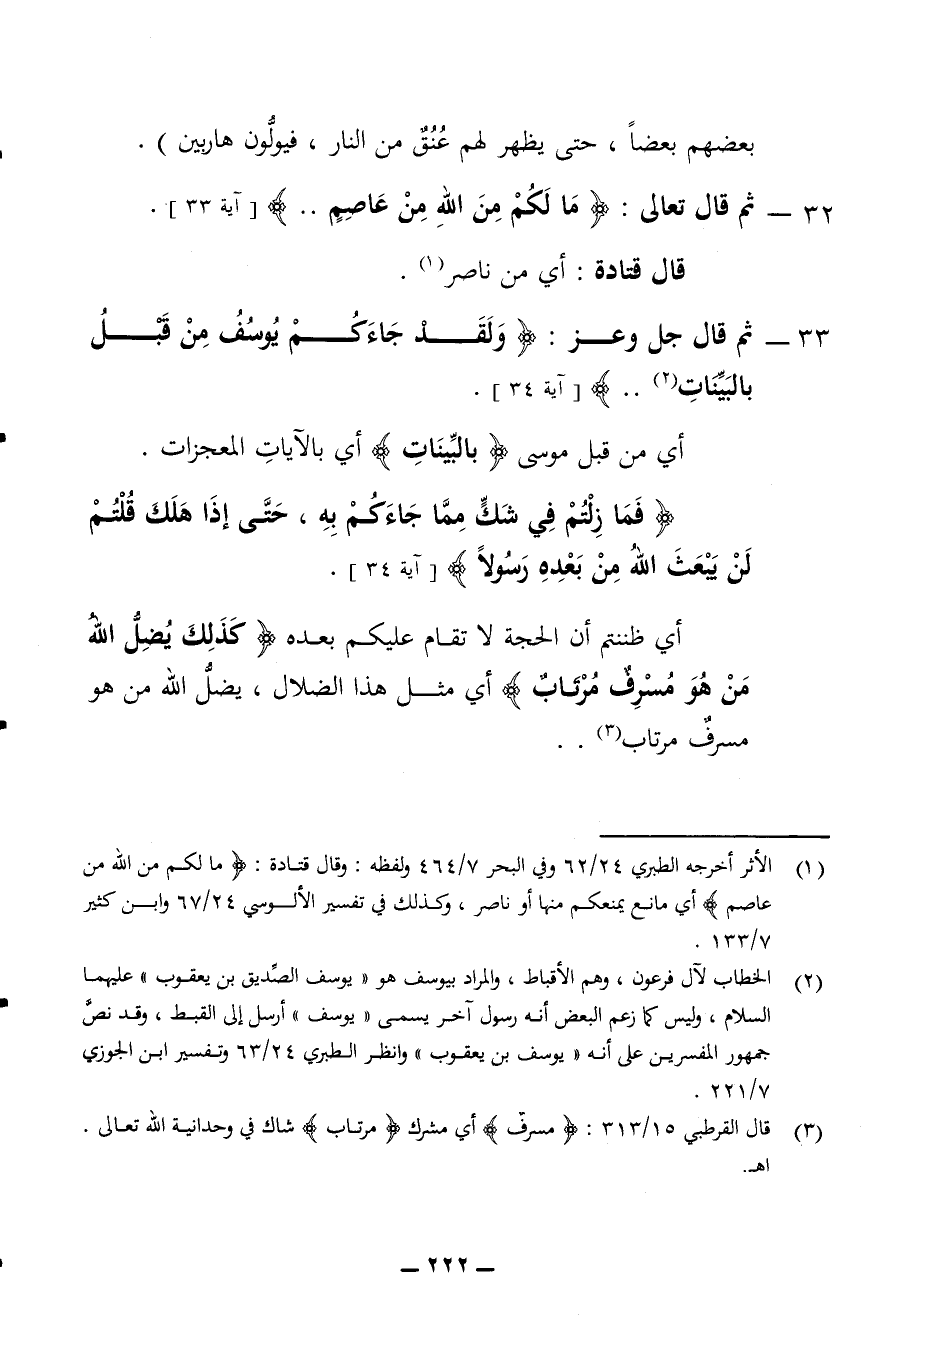 بعضهم بعضاً ، حتى يظهر لهم عُنُقٌ من النار ، فيولُّون هاربين ) .
٣٢ ـ ثم قال تعالى : ﴿ مَا لَكُمْ مِنَ اللهِ مِنْ عَاصِمٍ .. ﴾ [ آية ٣٣ ] .
قال قتادة : أي من ناصر(١) .
٣٣ ـ ثم قال جل وعـز : ﴿ وَلَقَـدْ جَاءَكُـمْ يُوسُفُ مِنْ قَبْـلُ
بالبَيِّنَاتِ(٢) .. ﴾ [ آية ٣٤ ] .
أي من قبل موسى ﴿ بالبِّينَاتِ ﴾ أي بالآياتِ المعجزات .
﴿ فَمَا زِلْتُمْ فِي شَكٍّ مِمَّا جَاءَكُمْ بِهِ ، حَتَّى إذَا هَلَكَ قُلْتُمْ
لَنْ يَبْعَثَ اللهُ مِنْ بَعْدِهِ رَسُولاً ﴾ [ آية ٣٤ ] .
أي ظننتم أن الحجة لا تقام عليكم بعده ﴿ كَذَلِكَ يُضِلُّ اللهُ
مَنْ هُوَ مُسْرِفٌ مُرْتَابٌ ﴾ أي مثـل هذا الضلال ، يضلُّ الله من هو
مسرفٌ مرتاب(٣) . .
(١) الأثر أخرجه الطبري ٦٢/٢٤ وفي البحر ٤٦٤/٧ ولفظه : وقال قتادة : ﴿ ما لكم من الله من
عاصم ﴾ أي مانع يمنعكم منها أو ناصر ، وكذلك في تفسير الألوسي ٦٧/٢٤ وابن كثير
١٣٣/٧ .
(٢) الخطاب لآل فرعون ، وهم الأقباط ، والمراد بيوسف هو « يوسف الصِّديق بن يعقوب » عليهما
السلام ، وليس كما زعم البعض أنه رسول آخر يسمى « يوسف » أرسل إلى القبط ، وقد نصَّ
جمهور المفسرين على أنه « يوسف بن يعقوب » وانظر الطبري ٦٣/٢٤ وتفسير ابن الجوزي
٢٢١/٧ .
(٣) قال القرطبي ٣١٣/١٥ : ﴿ مسرفٌ ﴾ أي مشرك ﴿ مرتاب ﴾ شاك في وحدانية الله تعالى .
اهـ.
ـ ٢٢٢ ـ